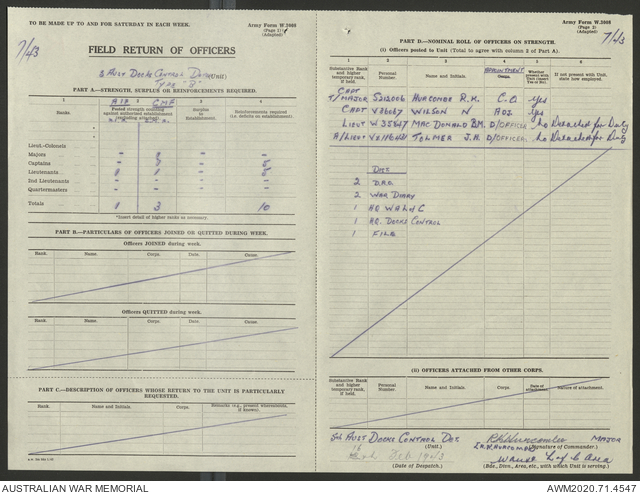 TO BE MADE UP TO AND FOR SATURDAY IN EACH WEEK.
Army Form W.3008
(Page 1)
(Adapted)
7/43
FIELD RETURN OF OFFICERS
5 Aust Docks Control Det (Unit)
Type "B"
PART A.—STRENGTH, SURPLUS OR REINFORCEMENTS REQUIRED.
1 2 3 4
Ranks A.I.F. C.M.F.
Posted strength counting against authorised establishment (including attached). Surplus to Establishment. Reinforcements required (i.e. deficits on establishment).
Lieut-Colonels
Majors
Captains
Lieutenants
2nd Lieutenants
Quartermasters
Totals 1 3 10
*Insert detail of higher ranks as necessary.
PART B.—PARTICULARS OF OFFICERS JOINED OR QUITTED DURING WEEK.
Officers JOINED during week.
Rank. Name. Corps. Date. Cause.
Officers QUITTED during week.
Rank. Name. Corps. Date. Cause.
PART C.—DESCRIPTION OF OFFICERS WHOSE RETURN TO THE UNIT IS PARTICULARLY REQUESTED.
Rank. Name and Initials. Corps. Remarks (e.g., present whereabouts, if known).
Army Form W.3008
(Page 2)
(Adapted)
7/43
PART D.—NOMINAL ROLL OF OFFICERS ON STRENGTH.
(i) Officers posted to Unit (Total to agree with column 2 of Part A).
1 2 3 4 5 6
Substantive Rank and higher temporary rank, if held. Personal Number. Name and Initials. APPOINTMENT Whether present with Unit (insert Yes or No) If not present with Unit, state how employed.
Capt
T/Major SX12006 Huxcombe R.K. C.O. Yes
Capt VX6687 Wilson N Adj. Yes
Lieut W 35847 Mac Donald B.M. D/Officer No Detached for Duty
A/Lieut Tolmer J.H. D/Officer No Detached for Duty
Dist
2 D.R.O.
2 War Diary
1 HQ W A L of C
1 HQ. Docks Control
1 File
(ii) OFFICERS ATTACHED FROM OTHER CORPS.
Substantive Rank and higher temporary rank, if held. Personal Number. Name and Initials. Corps. Date of attachment. Nature of attachment.
5th Aust Docks Control Det. (Unit.)
Major (Signature of Commander.)
Feb 1943
(Date of Despatch.)
L of C Area
(Bde., Divn., Area, etc., with which Unit is serving.)
AUSTRALIAN WAR MEMORIAL
AWM2020.71.4547